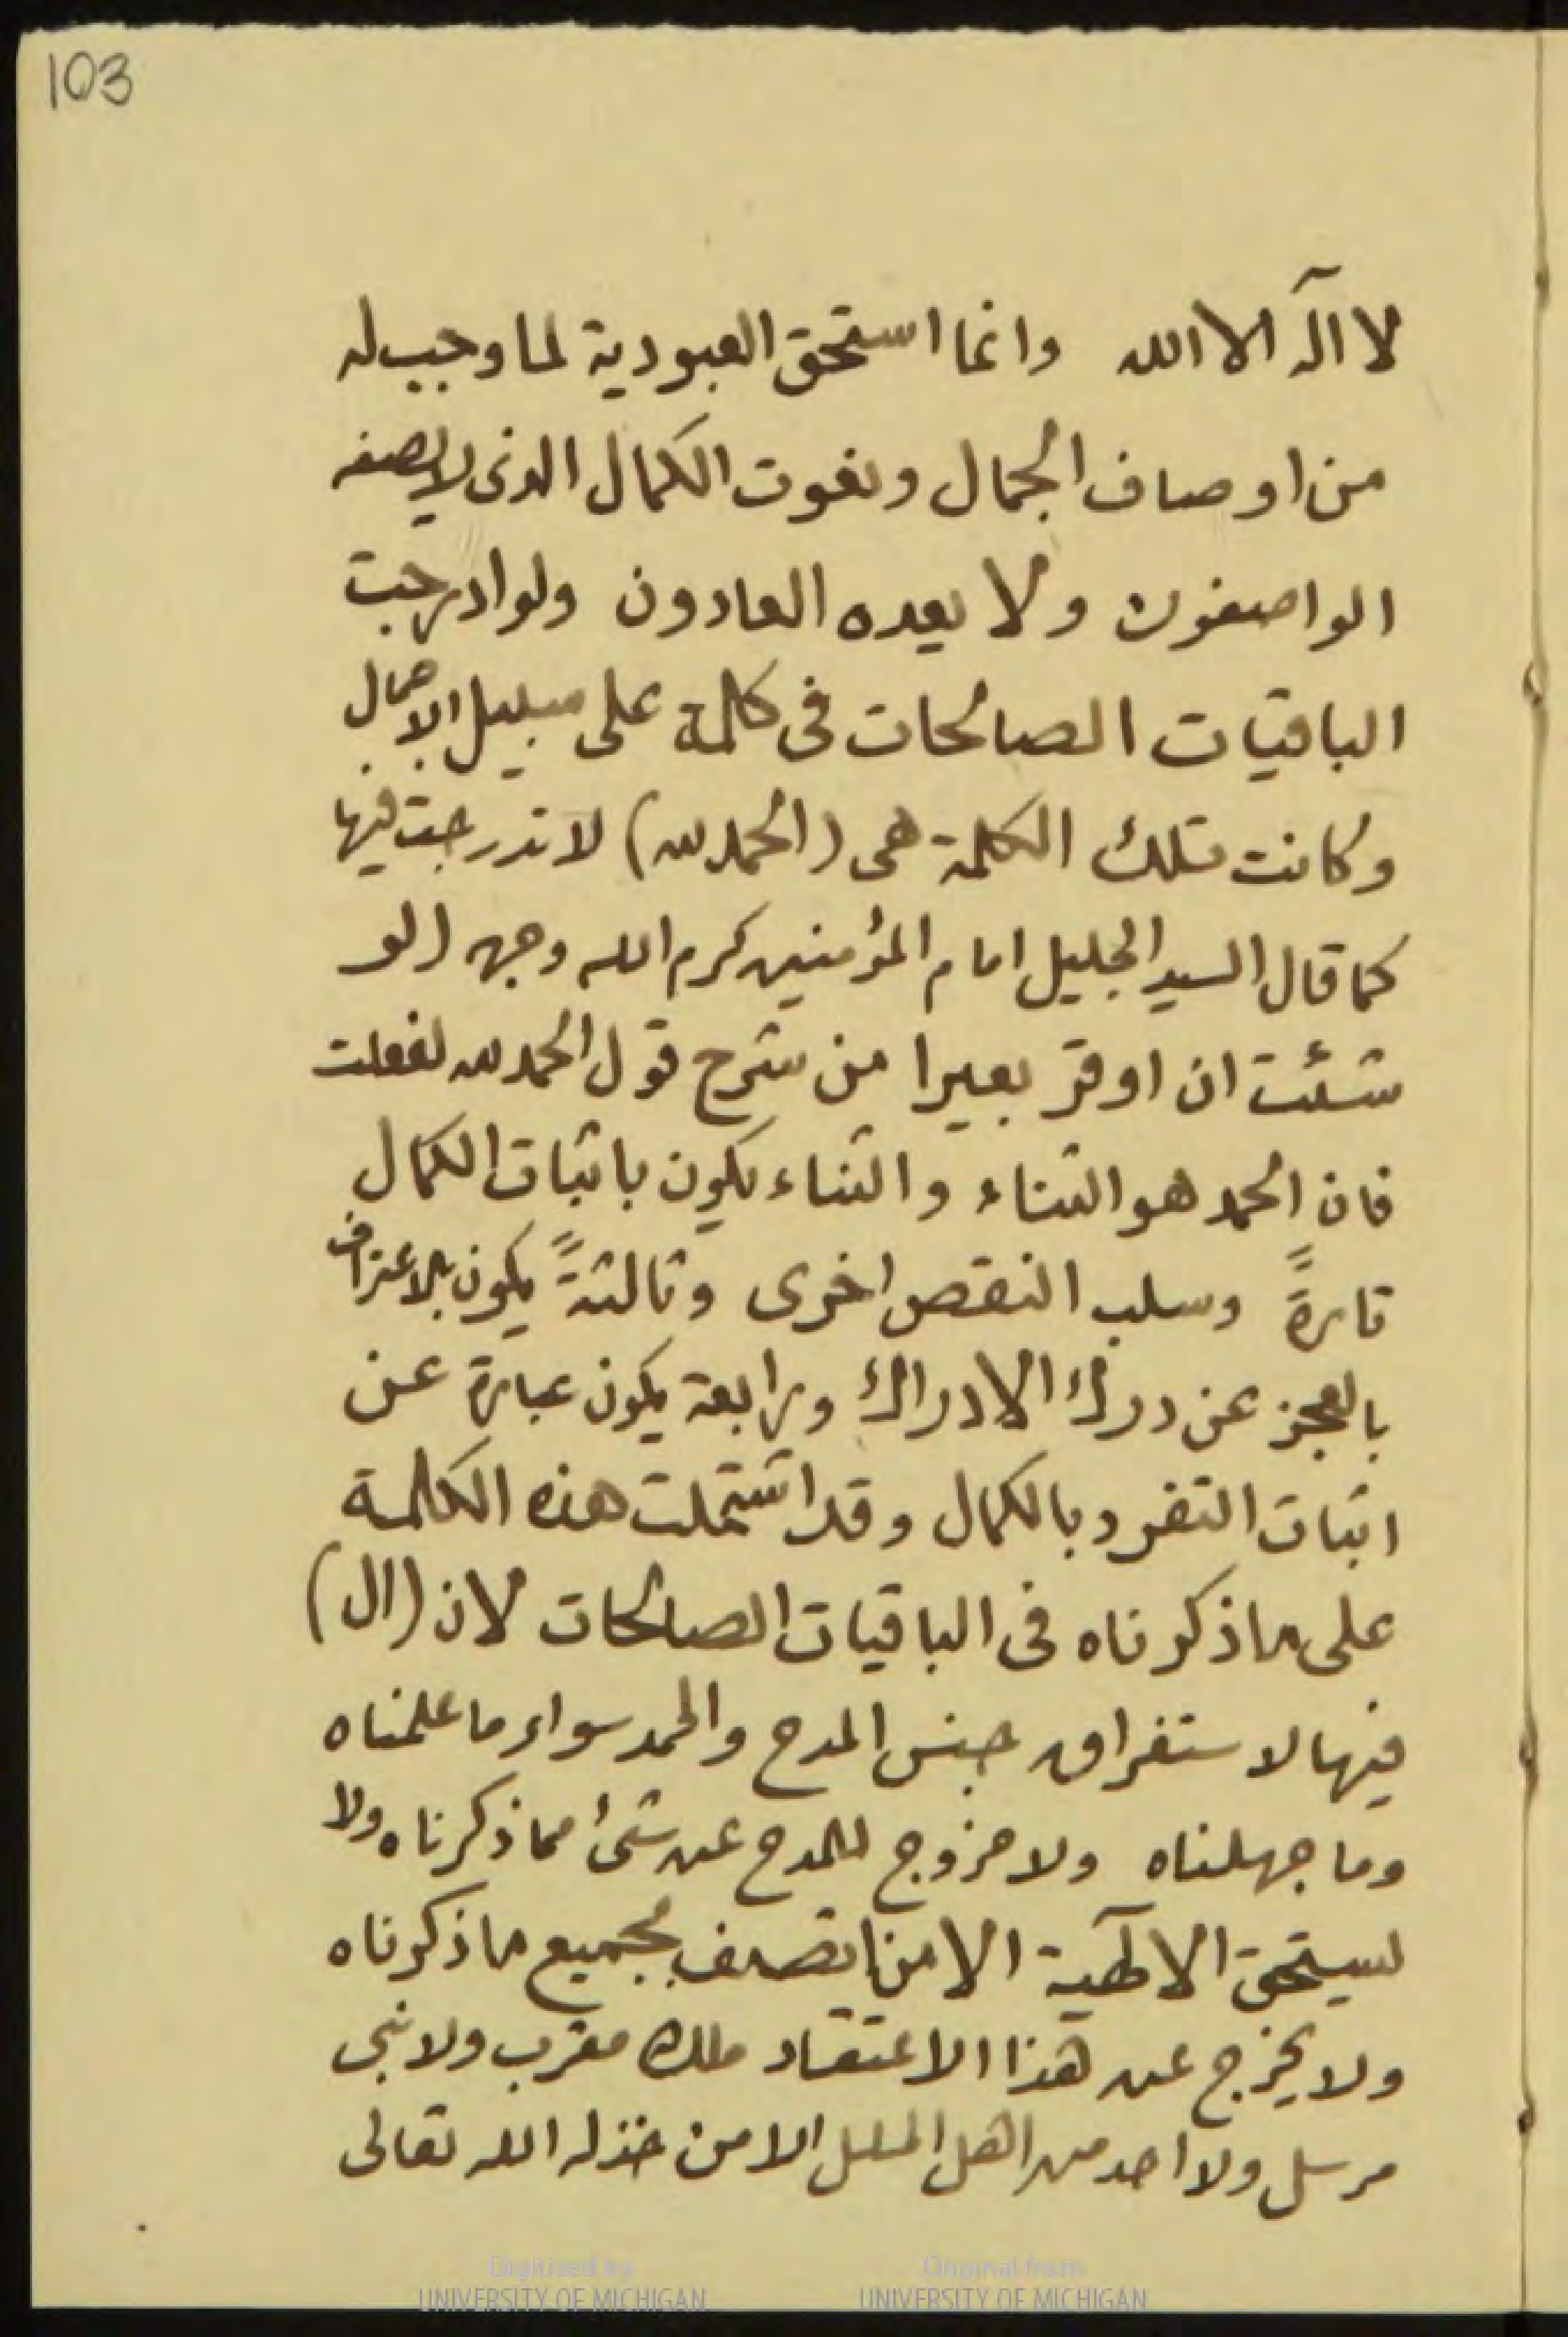 103
لا اله الا الله وانما استحق العبودية لما وجب له
من اوصاف الجمال ونعوت الكمال الذى لا يصفه
الواصفون ولا يعده العادون ولو ادرجت
الباقيات الصالحات فى كلمة على سبيل الاجمال
وكانت تلك الكلمة هى (الحمد لله) لاندرجت فيها
كما قال السيد الجليل امام المؤمنين كرم الله وجهه (لو
شئت ان اوقر بعيرا من شرح قول الحمد لله لفعلت
فان الحمد هو الثناء والثناء يكون باثبات الكمال
تارةً وسلب النقص اخرى وثالثةً يكون بالاعتراف
بالعجز عن درك الادراك ورابعة يكون عبارة عن
اثبات التفرد بالكمال وقد اشتملت هذه الكلمة
على ما ذكرناه فى الباقيات الصالحات لان (ال)
فيها لاستغراق جنس المدح والحمد سواء ما علمناه
وما جهلناه ولا خروج للمدح عن شئ مما ذكرناه ولا
يستحق الالهية الا من اتصف بجميع ما ذكرناه
ولا يخرج عن هذا الاعتقاد ملك مقرب ولا نبى
مرسل ولا احد من اهل الملل الا من خذله الله تعالى
Digitized by
UNIVERSITY OF MICHIGAN
Original from
UNIVERSITY OF MICHIGAN